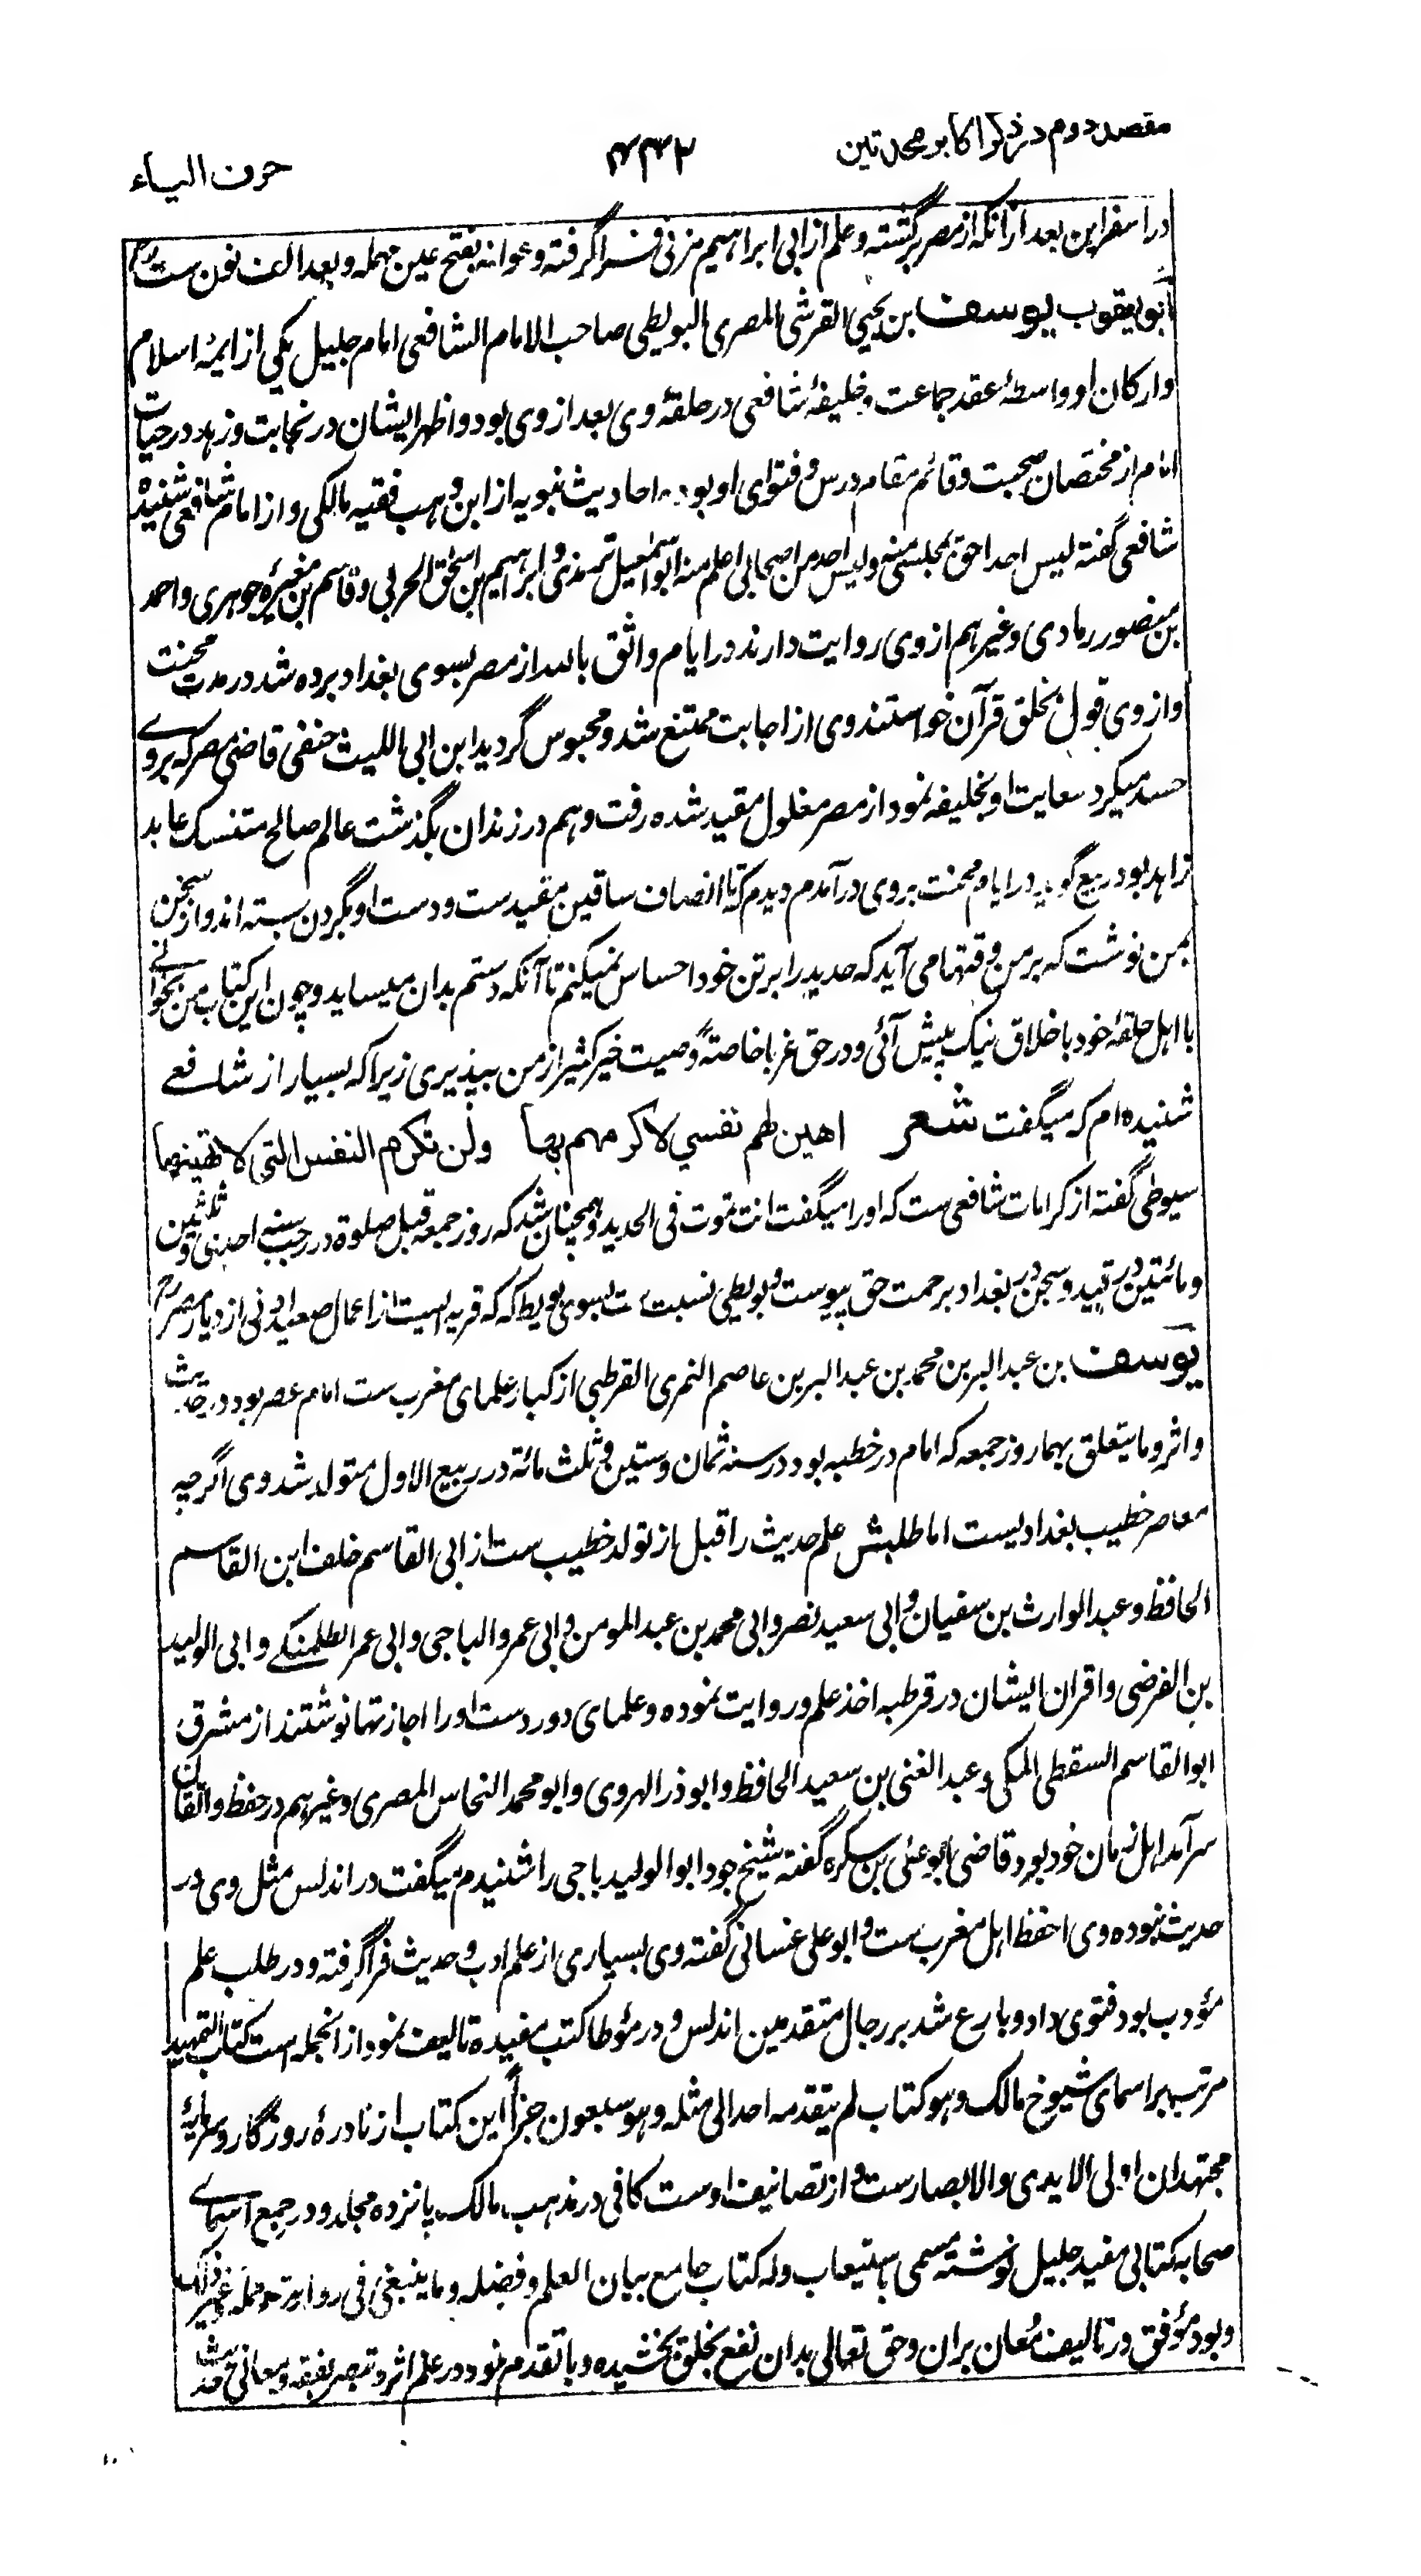 مقصد دوم در ذکر اکابر محدثین
۴۴۲
حرف الیاء
در اسفراین بعد ازانکه از مصر برگشته و علم از ابی ابراهیم مزنی فرا گرفته و عوانه بفتح عین مهمله و بعد الف نون ست رح
ابو یعقوب یوسف بن یحیی القرشی المصری البویطی صاحب الامام الشافعی امام جلیل یکی از ایمهٔ اسلام
و ارکان او و واسطهٔ عقد جماعت و خلیفهٔ شافعی در حلقهٔ وی بعد از وی بود و اظهر ایشان در نجابت و زهد در حیات
امام از مختصان صحبت و قائم مقام درس و فتوای او بود احادیث نبویه از ابن وهب فقیه مالکی و از امام شافعی شنیده
شافعی گفته لیس احد احق بمجلسی منه و لیس احد من اصحابی اعلم منه ابو اسمعیل ترمذی و ابراهیم بن اسحق الحربی و قاسم بن مغیره جوهری و احمد
بن منصور رمادی و غیرهم از وی روایت دارند در ایام واثق بالله از مصر بسوی بغداد برده شد در مدت محنت
و از وی قول بخلق قرآن خواستند وی از اجابت ممتنع شد و محبوس گردید ابن ابی اللیث حنفی قاضی مصر که بروے
حسد میکرد سعایت او بخلیفه نمود از مصر مغلول مقید شده رفت و هم در زندان بگذشت عالم صالح متنسک عابد
زاهد بود ربیع گوید در ایام محنت بروی درآمدم دیدم که تا انصاف ساقین مقیدست و دست او بگردن بسته اند و از سجن
بمن نوشت که بر من وقتها می آید که حدید را بر تن خود احساس نمیکنم تا آنکه دستم بدان میساید و چون این کتاب من بخوانے
با اهل حلقهٔ خود باخلاق نیک پیش آئی و در حق غربا خاصةً وصیت خیر کثیر از من بپذیری زیرا که بسیار از شافعے
شنیده ام که میگفت شعر اهین لهم نفسی لاکرمهم بها ولن تکرم النفس التی لا تهینها
سیوطی گفته از کرامات شافعی ست که او را میگفت انت تموت فی الحدید و همچنان شد که روز جمعه قبل صلوة در رجب سنه احدی و ثلثین
و مائتین در قید و سجن در بغداد برحمت حق پیوست و بویطی نسبت ست بسوی بویط که قریه ایست از اعمال صعید ادنی از دیار مصر رح
یوسف بن عبد البر بن محمد بن عبد البر بن عاصم النمری القرطبی از کبار علمای مغرب ست امام عصر بود در حدیث
و اثر و ما یتعلق بهما روز جمعه که امام در خطبه بود در سنه ثمان و ستین و ثلث مائة در ربیع الاول متولد شد وی اگرچه
معاصر خطیب بغدادیست اما طلبش علم حدیث را قبل از تولد خطیب ست از ابی القاسم خلف ابن القاسم
الحافظ و عبد الوارث بن سفیان و ابی سعید نصر و ابی محمد بن عبد المومن و ابی عمرو الباجی و ابی عمر الطلمنکے و ابی الولید
بن الفرضی و اقران ایشان در قرطبه اخذ علم و روایت نموده و علمای دور دست او را اجازتها نوشتند از مشرق
ابو القاسم السقطی المکی و عبد الغنی بن سعید الحافظ و ابو ذر الهروی و ابو محمد النحاس المصری و غیرهم در حفظ و اتقان
سرآمد اهل زمان خود بود قاضی ابو علی بن سکره گفته شیخ خود ابو الولید باجی را شنیدم میگفت در اندلس مثل وی در
حدیث نبوده وی احفظ اهل مغرب ست و ابو علی غسانی گفته وی بسیاری از علم ادب و حدیث فرا گرفته و در طلب علم
مؤدب بود فتوی داد و بارع شد بر رجال متقدمین اندلس و در مؤطا کتب مفیده تالیف نمود ازانجمله است کتاب التمهید
مرتب بر اسمای شیوخ مالک و هو کتاب لم یتقدمه احد الی مثله و هو سبعون جزأً این کتاب از نادرهٔ روزگار و سرمایهٔ
مجتهدان اولی الایدی والابصار ست و از تصانیف اوست کافی در مذهب مالک پانزده مجلد و در جمع اسماے
صحابه کتابی مفید جلیل نوشته مسمی باستیعاب وله کتاب جامع بیان العلم و فضله و ما ینبغی فی روایته و حمله و غیر ذلک
و بود مؤفق در تالیف مُعان بران و حق تعالی بدان نفع بخلق بخشیده و با تقدم خود در علم اثر و تبصر بفقه و معانی حدیث